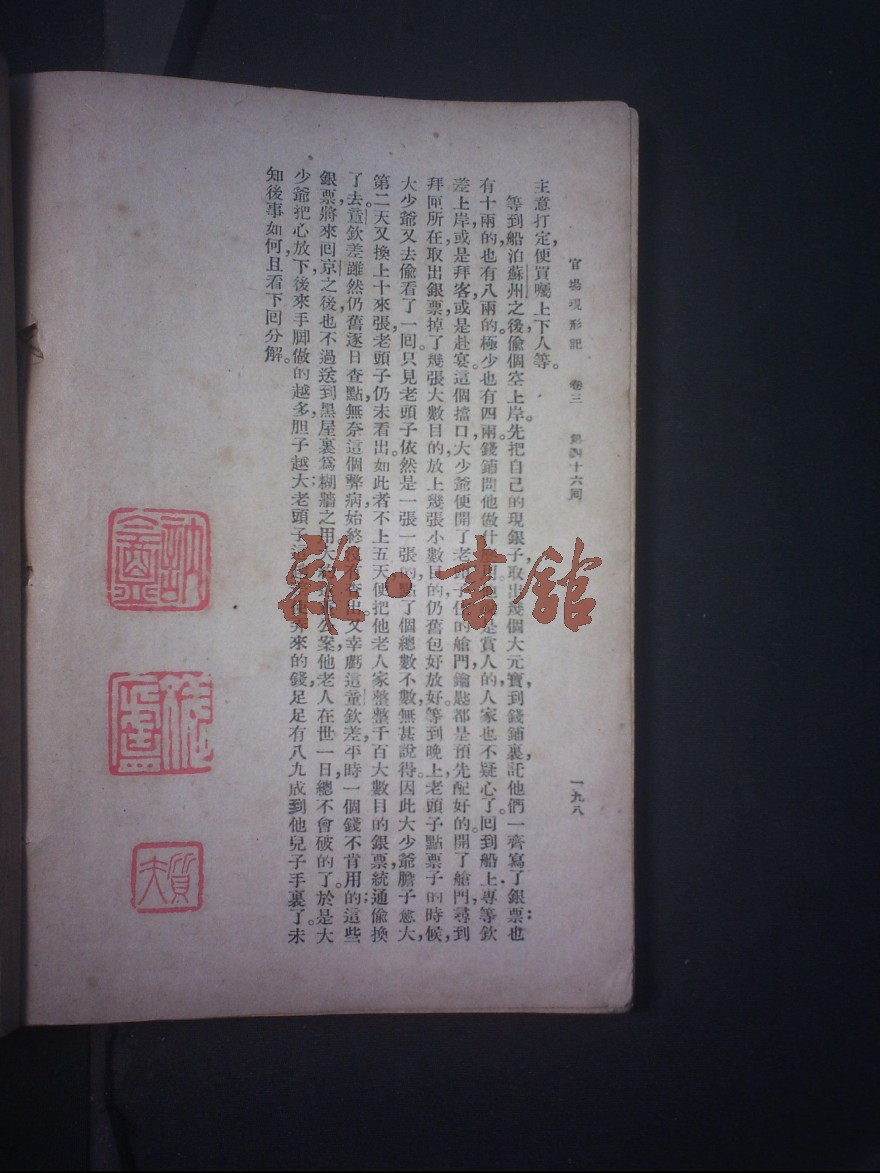 官場現形記 卷三 第四十六回 一九八
主意打定，便買囑上下人等。
等到船泊蘇州之後，偷個空上岸。先把自己的現銀子，取出幾個大元寶，到錢鋪裏，託他們一齊寫了銀票：也
有十兩的，也有八兩的，極少也有四兩。錢鋪問他做什 是賞人的，人家也不疑心了。回到船上，專等欽
差上岸，或是拜客，或是赴宴。這個擋口，大少爺便開了老 子 的艙門，鑰匙都是預先配好的，開了艙門，尋到
拜匣所在，取出銀票，掉了幾張大數目的，放上幾張小數目的，仍舊包好放好。等到晚上，老頭子點票子的時候，
大少爺又去偷看了一回。只見老頭子依然是一張一張的點了個總數不數，無甚說得。因此大少爺膽子愈大，
第二天又換上十來張，老頭子仍未看出。如此者不上五天，便把他老人家整整千百大數目的銀票，統通偷換
了去。童欽差雖然仍舊逐日查點，無奈這個弊病，始終沒有查出。又幸虧這童欽差，平時一個錢不肯用的，這些
銀票，將來回京之後，也不過送到黑屋裏爲糊牆之用，大 公案，他老人在世一日，總不會破的了。於是大
少爺把心放下，後來手脚做的越多，胆子越大，老頭子這 弄來的錢，足足有八九成到他兒子手裏了。未
知後事如何，且看下回分解。
雜·書館
質夫